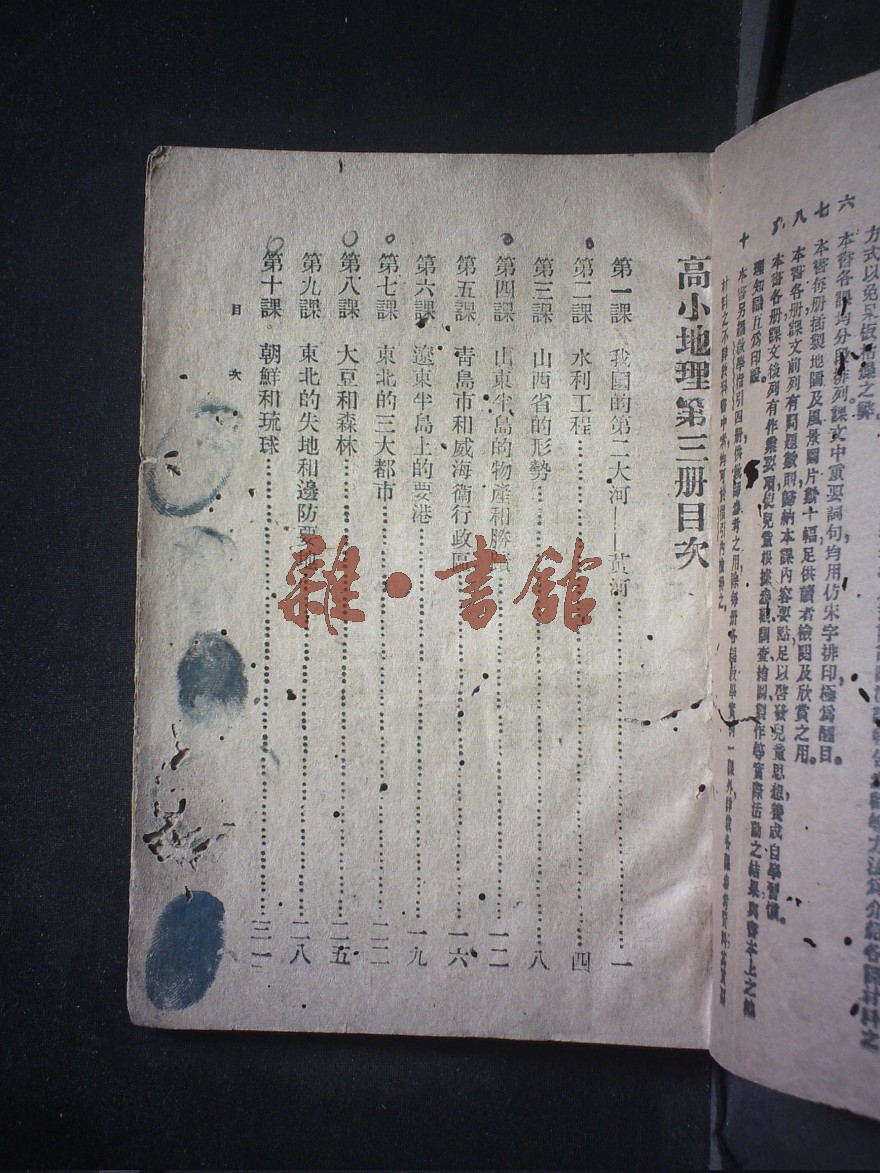 方式以免呆板
六 本書各課均分段排列課文中重要詞句均用仿宋字排印極爲醒目。
七 本書每册插製地圖及風景圖片數十幅足供讀者檢閱及欣賞之用。
八 本書各册課文前列有問題數則歸納本課內容要點足以啓發兒童思想養成自學習慣。
本書各册課文後列有作業要項使兒童根據參觀調查繪圖製作等實際活動之結果與書本上之地
理知識互爲印證。
十 本書另編教學指引四册供教師參考之用
高小地理第三册目次
第一課 我國的第二大河——黃河……一
第二課 水利工程……四
第三課 山西省的形勢……八
第四課 山東半島的物產和勝……一二
第五課 青島市和威海衛行政區……一六
第六課 遼東半島上的要港……一九
第七課 東北的三大都市……二二
第八課 大豆和森林……二五
第九課 東北的失地和邊防要地……二八
第十課 朝鮮和琉球……三一
目 次
雜·書館